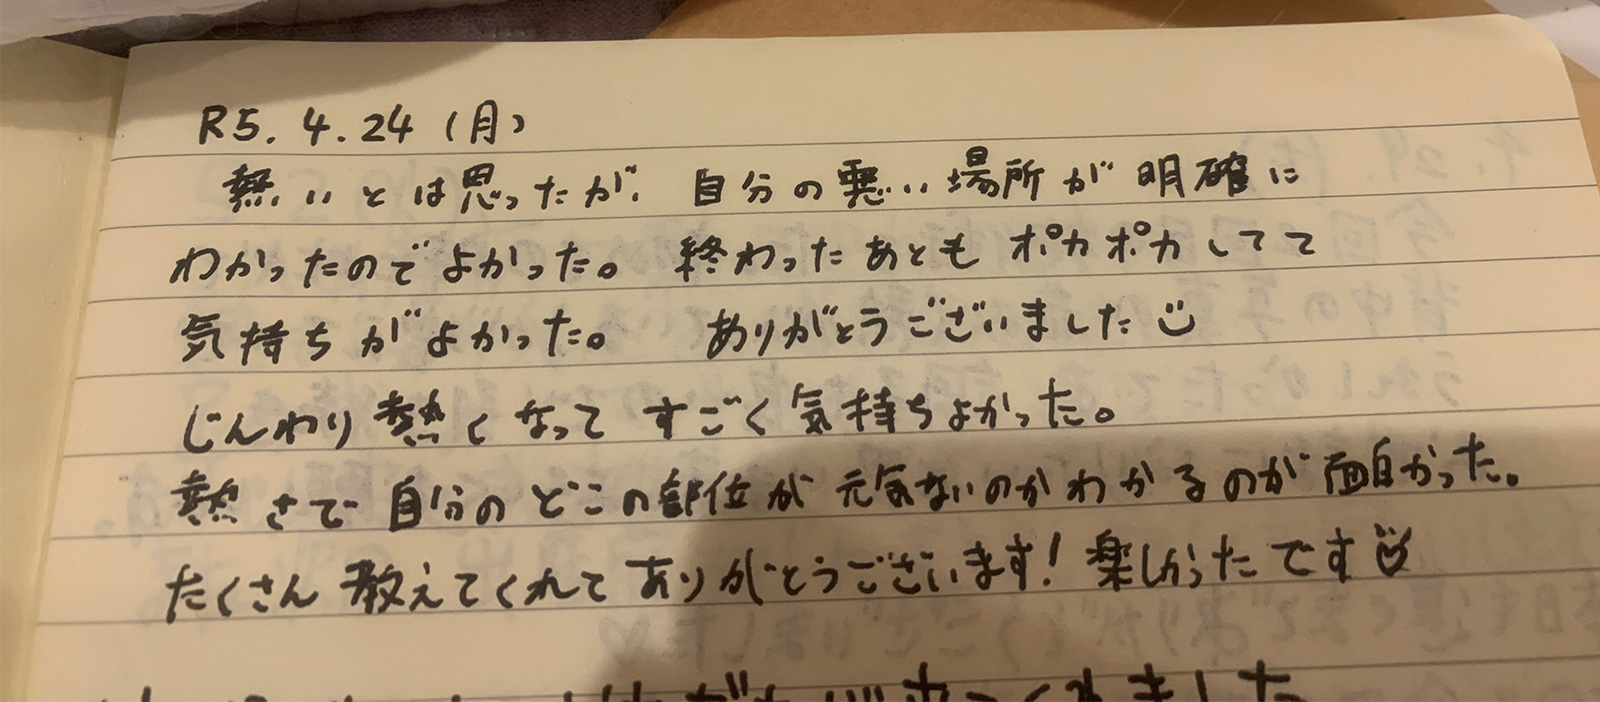 R5.4.24(月)
熱いとは思ったが、自分の悪い場所が明確に
わかったのでよかった。終わったあともポカポカしてて
気持ちがよかった。ありがとうございました
じんわり熱くなってすごく気持ちよかった。
熱さで自分のどこの部位が元気ないのかわかるのが面白かった。
たくさん教えてくれてありがとうございます!楽しかったです